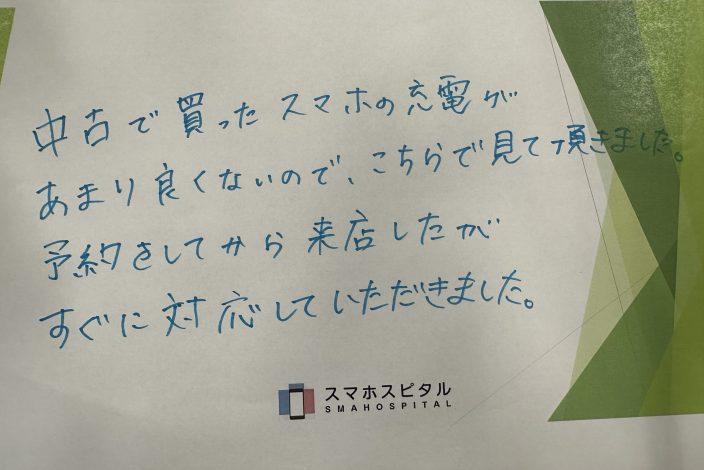 中古で買ったスマホの充電が
あまり良くないので、こちらで見て頂きました。
予約をしてから来店したが
すぐに対応していただきました。
スマホスピタル
SMAHOSPITAL